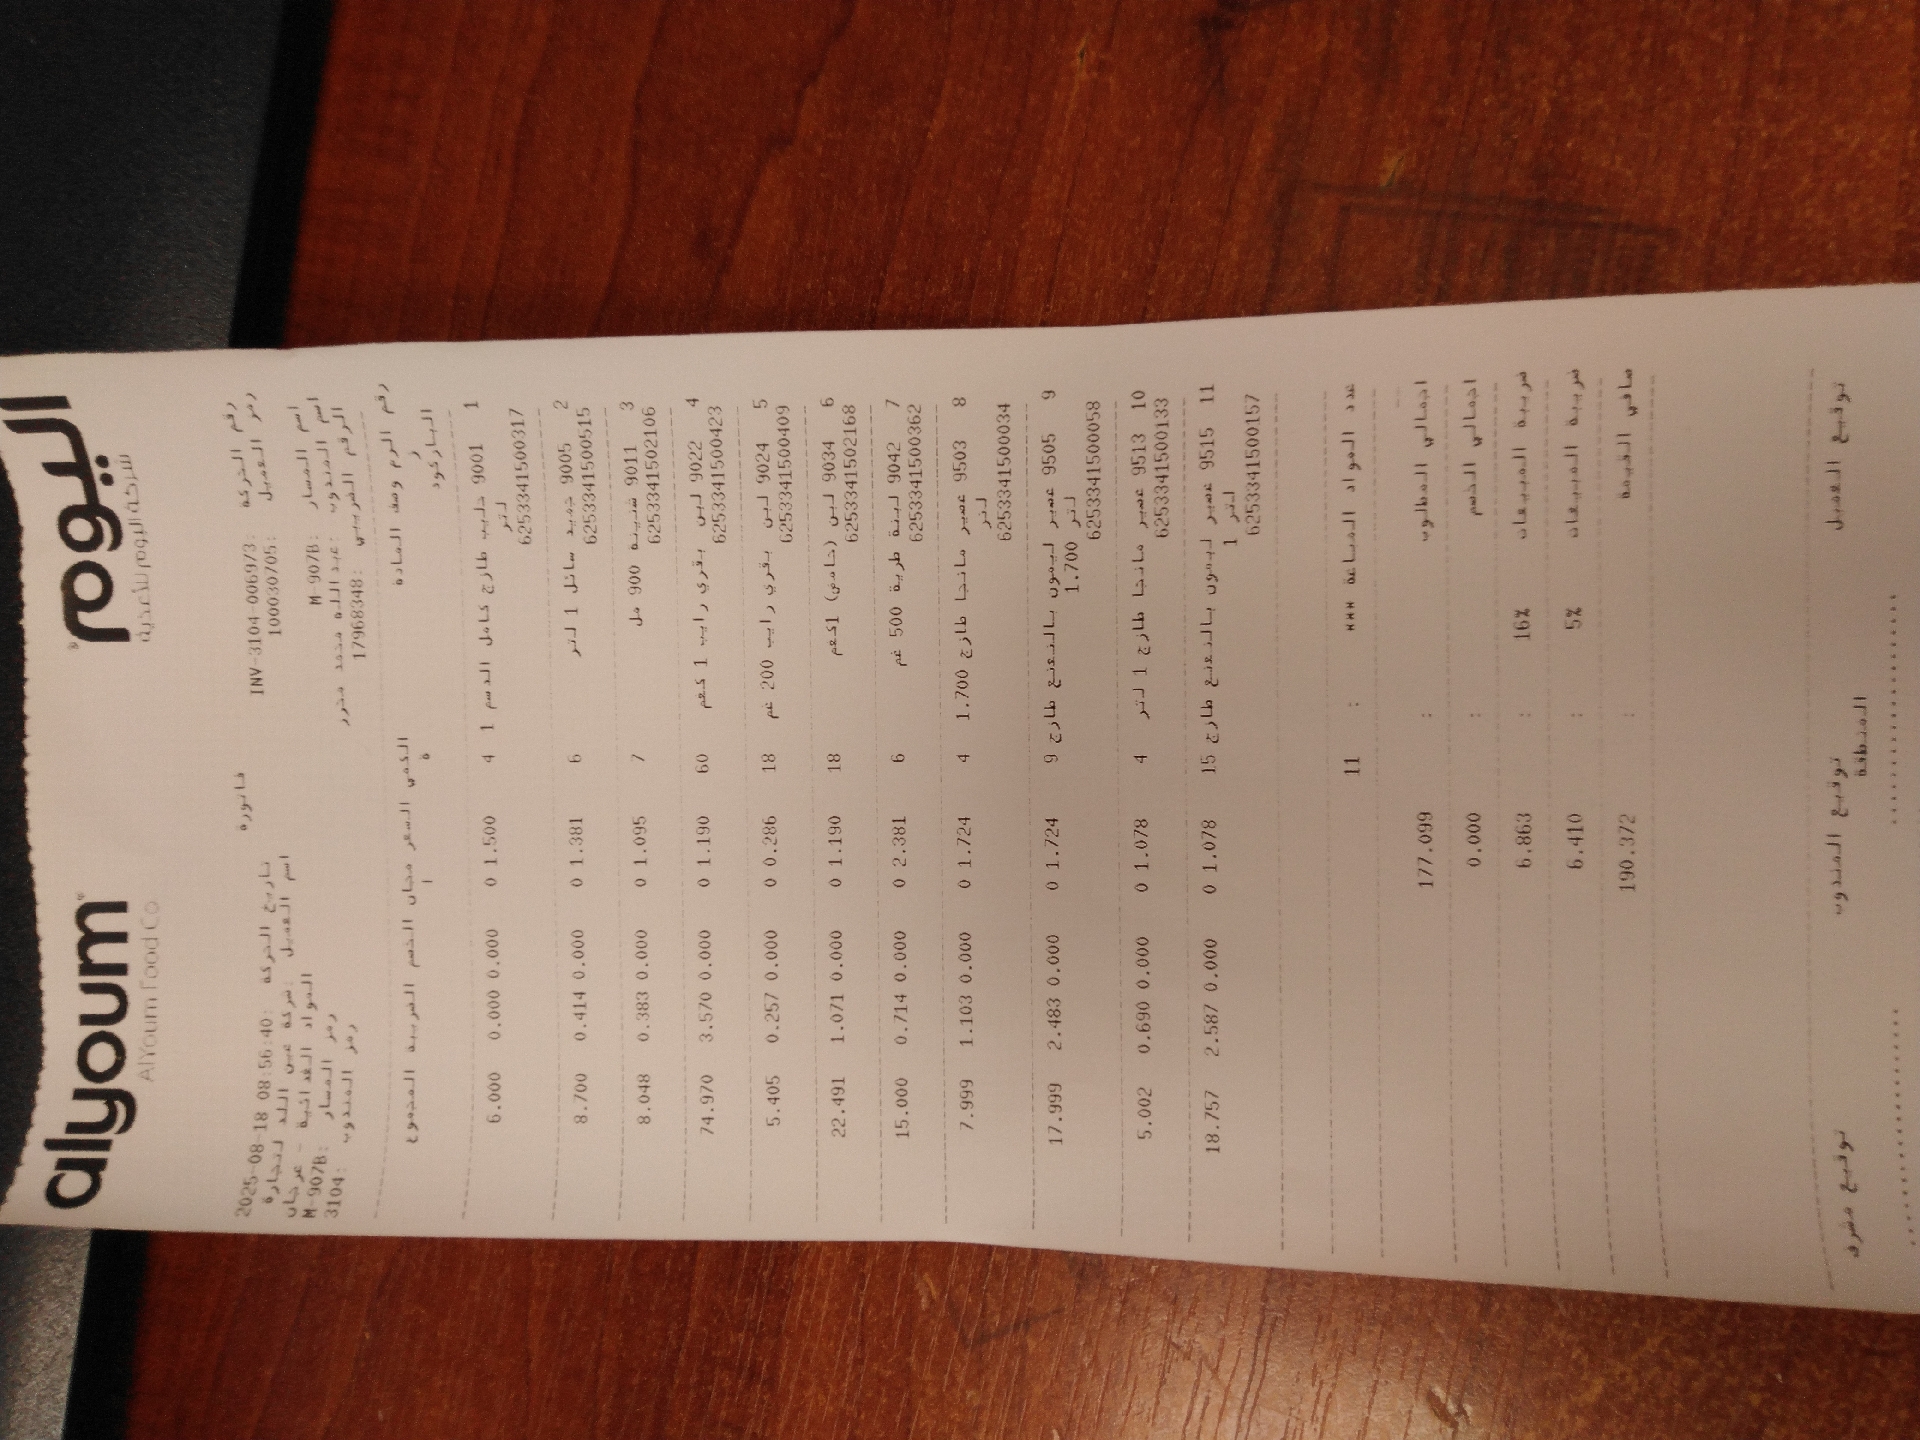 اليوم alyoum
شركة اليوم للأغذية AlYoum Food Co
فاتورة
رقم الحركة: INV-3104-006973 تاريخ الحركة: 2025-08-18 08:56:40
رمز العميل: 100030705 اسم العميل: شركة عين اللد لتجارة
المواد الغذائية - عرجان
اسم المسار: M-907B رمز المسار: M-907B
اسم المندوب: عبدالله محمد محرر رمز المندوب: 3104
الرقم الضريبي: 17968348
رقم الرم وصف المادة الكمي السعر مجان الخصم الضريبه المجموع
ز ة ا
الباركود
1 9001 حليب طازج كامل الدسم 1 4 1.500 0 0.000 0.000 6.000
لتر
6253341500317
2 9005 جميد سائل 1 لتر 6 1.381 0 0.000 0.414 8.700
6253341500515
3 9011 شنينه 900 مل 7 1.095 0 0.000 0.383 8.048
6253341502106
4 9022 لبن بقري رايب 1 كغم 60 1.190 0 0.000 3.570 74.970
6253341500423
5 9024 لبن بقري رايب 200 غم 18 0.286 0 0.000 0.257 5.405
6253341500409
6 9034 لبن (حامض) 1كغم 18 1.190 0 0.000 1.071 22.491
6253341502168
7 9042 لبنة طرية 500 غم 6 2.381 0 0.000 0.714 15.000
6253341500362
8 9503 عصير مانجا طازج 1.700 4 1.724 0 0.000 1.103 7.999
لتر
6253341500034
9 9505 عصير ليمون بالنعنع طازج 9 1.724 0 0.000 2.483 17.999
1.700 لتر
6253341500058
10 9513 عصير مانجا طازج 1 لتر 4 1.078 0 0.000 0.690 5.002
6253341500133
11 9515 عصير ليمون بالنعنع طازج 15 1.078 0 0.000 2.587 18.757
1 لتر
6253341500157
عدد المواد المباعة *** : 11
اجمالي المطلوب : 177.099
اجمالي الخصم : 0.000
ضريبة المبيعات 16% : 6.863
ضريبة المبيعات 5% : 6.410
صافي القيمة : 190.372
توقيع العميل توقيع المندوب توقيع مشرف
المنطقة